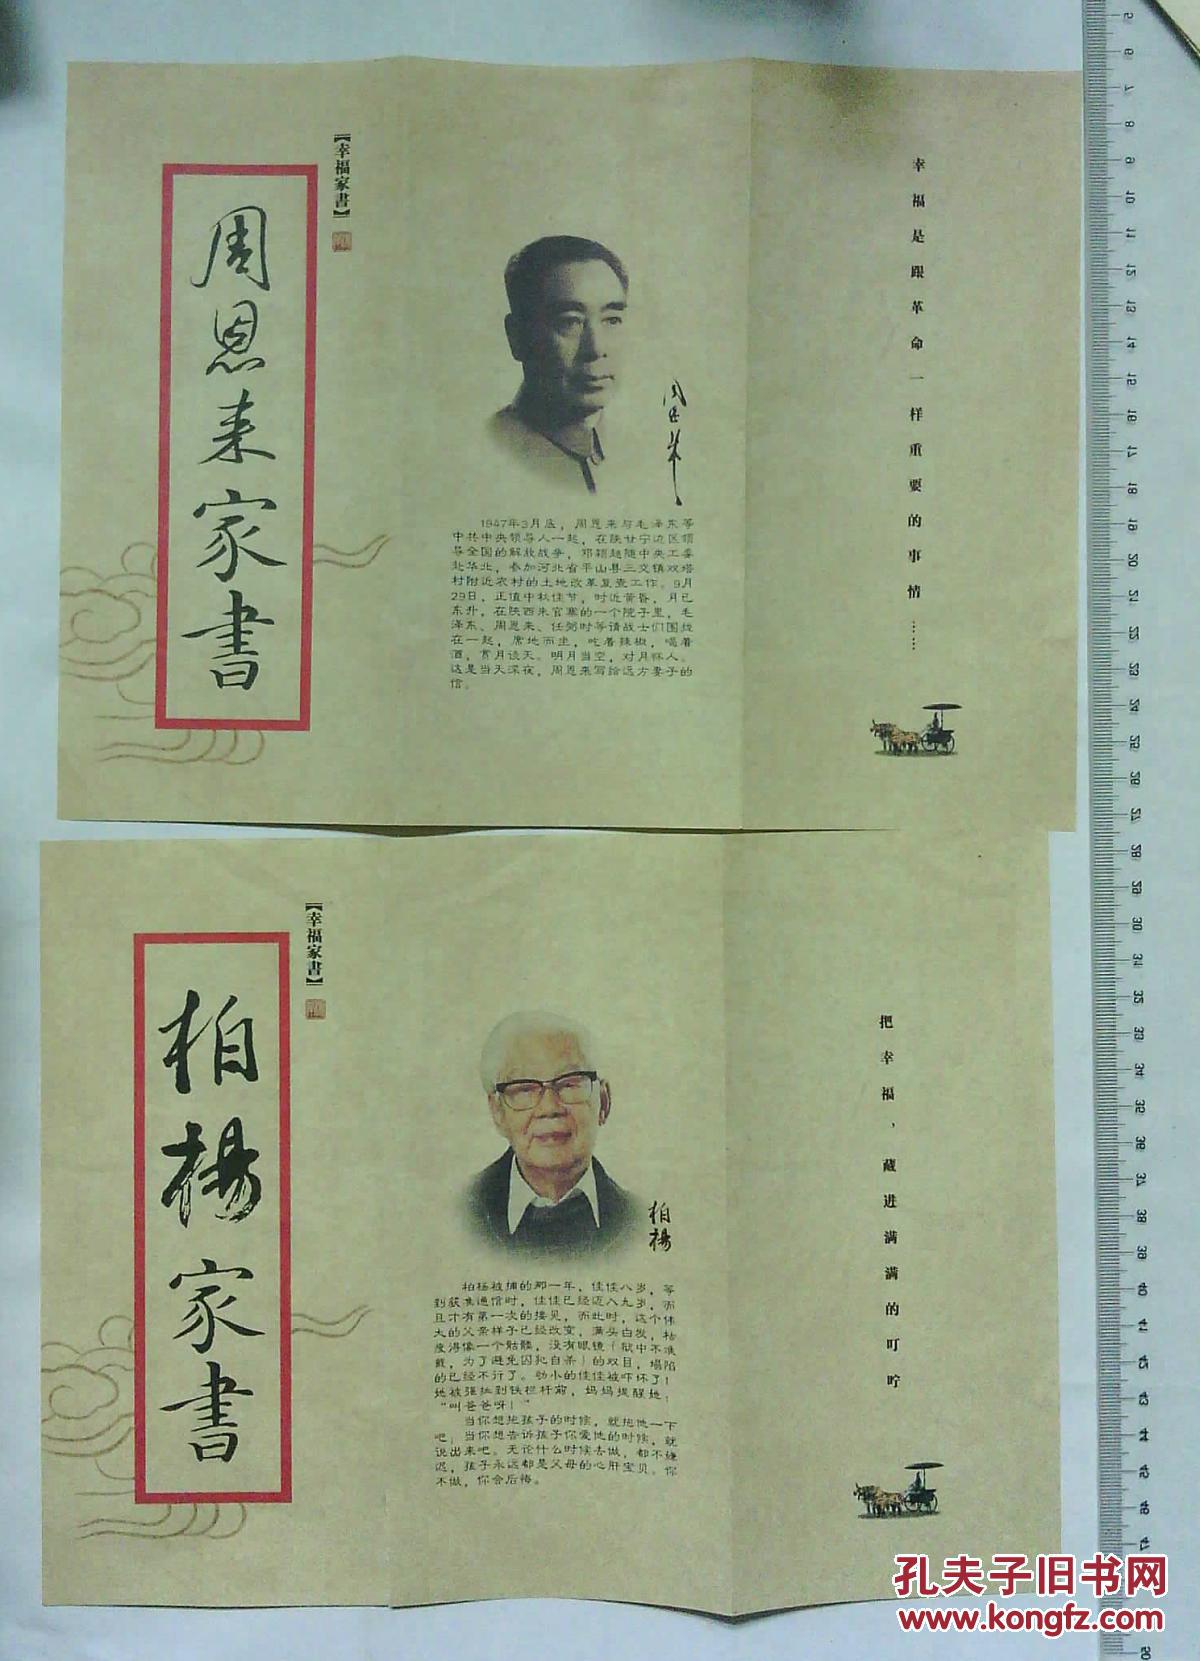 周恩来家書
【幸福家書】
周恩来
1947年3月底，周恩来与毛泽东等
中共中央领导人一起，在陕甘宁边区领
导全国的解放战争，邓颖超随中央工委
赴华北，参加河北省平山县三交镇双塔
村附近农村的土地改革复查工作。9月
29日，正值中秋佳节，时近黄昏，月已
东升，在陕西朱官寨的一个院子里，毛
泽东、周恩来、任弼时等请战士们围拢
在一起，席地而坐，吃着辣椒，喝着
酒，赏月谈天。明月当空，对月怀人。
这是当天深夜，周恩来写给远方妻子的
信。
幸福是跟革命一样重要的事情……
柏楊家書
【幸福家書】
柏楊
柏杨被捕的那一年，佳佳八岁，等
到获准通信时，佳佳已经迈入九岁，而
且才有第一次的接见，而此时，这个伟
大的父亲样子已经改变，满头白发，枯
瘦得像一个骷髅，没有眼镜（狱中不准
戴，为了避免囚犯自杀）的双目，塌陷
的已经不行了。幼小的佳佳被吓坏了！
她被强扯到铁栏杆前，妈妈提醒她：
“叫爸爸呀！”
当你想抱孩子的时候，就抱他一下
吧；当你想告诉孩子你爱他的时候，就
说出来吧。无论什么时候去做，都不嫌
迟，孩子永远都是父母的心肝宝贝。你
不做，你会后悔。
把幸福，藏进满满的叮咛
孔夫子旧书网
www.kongfz.com